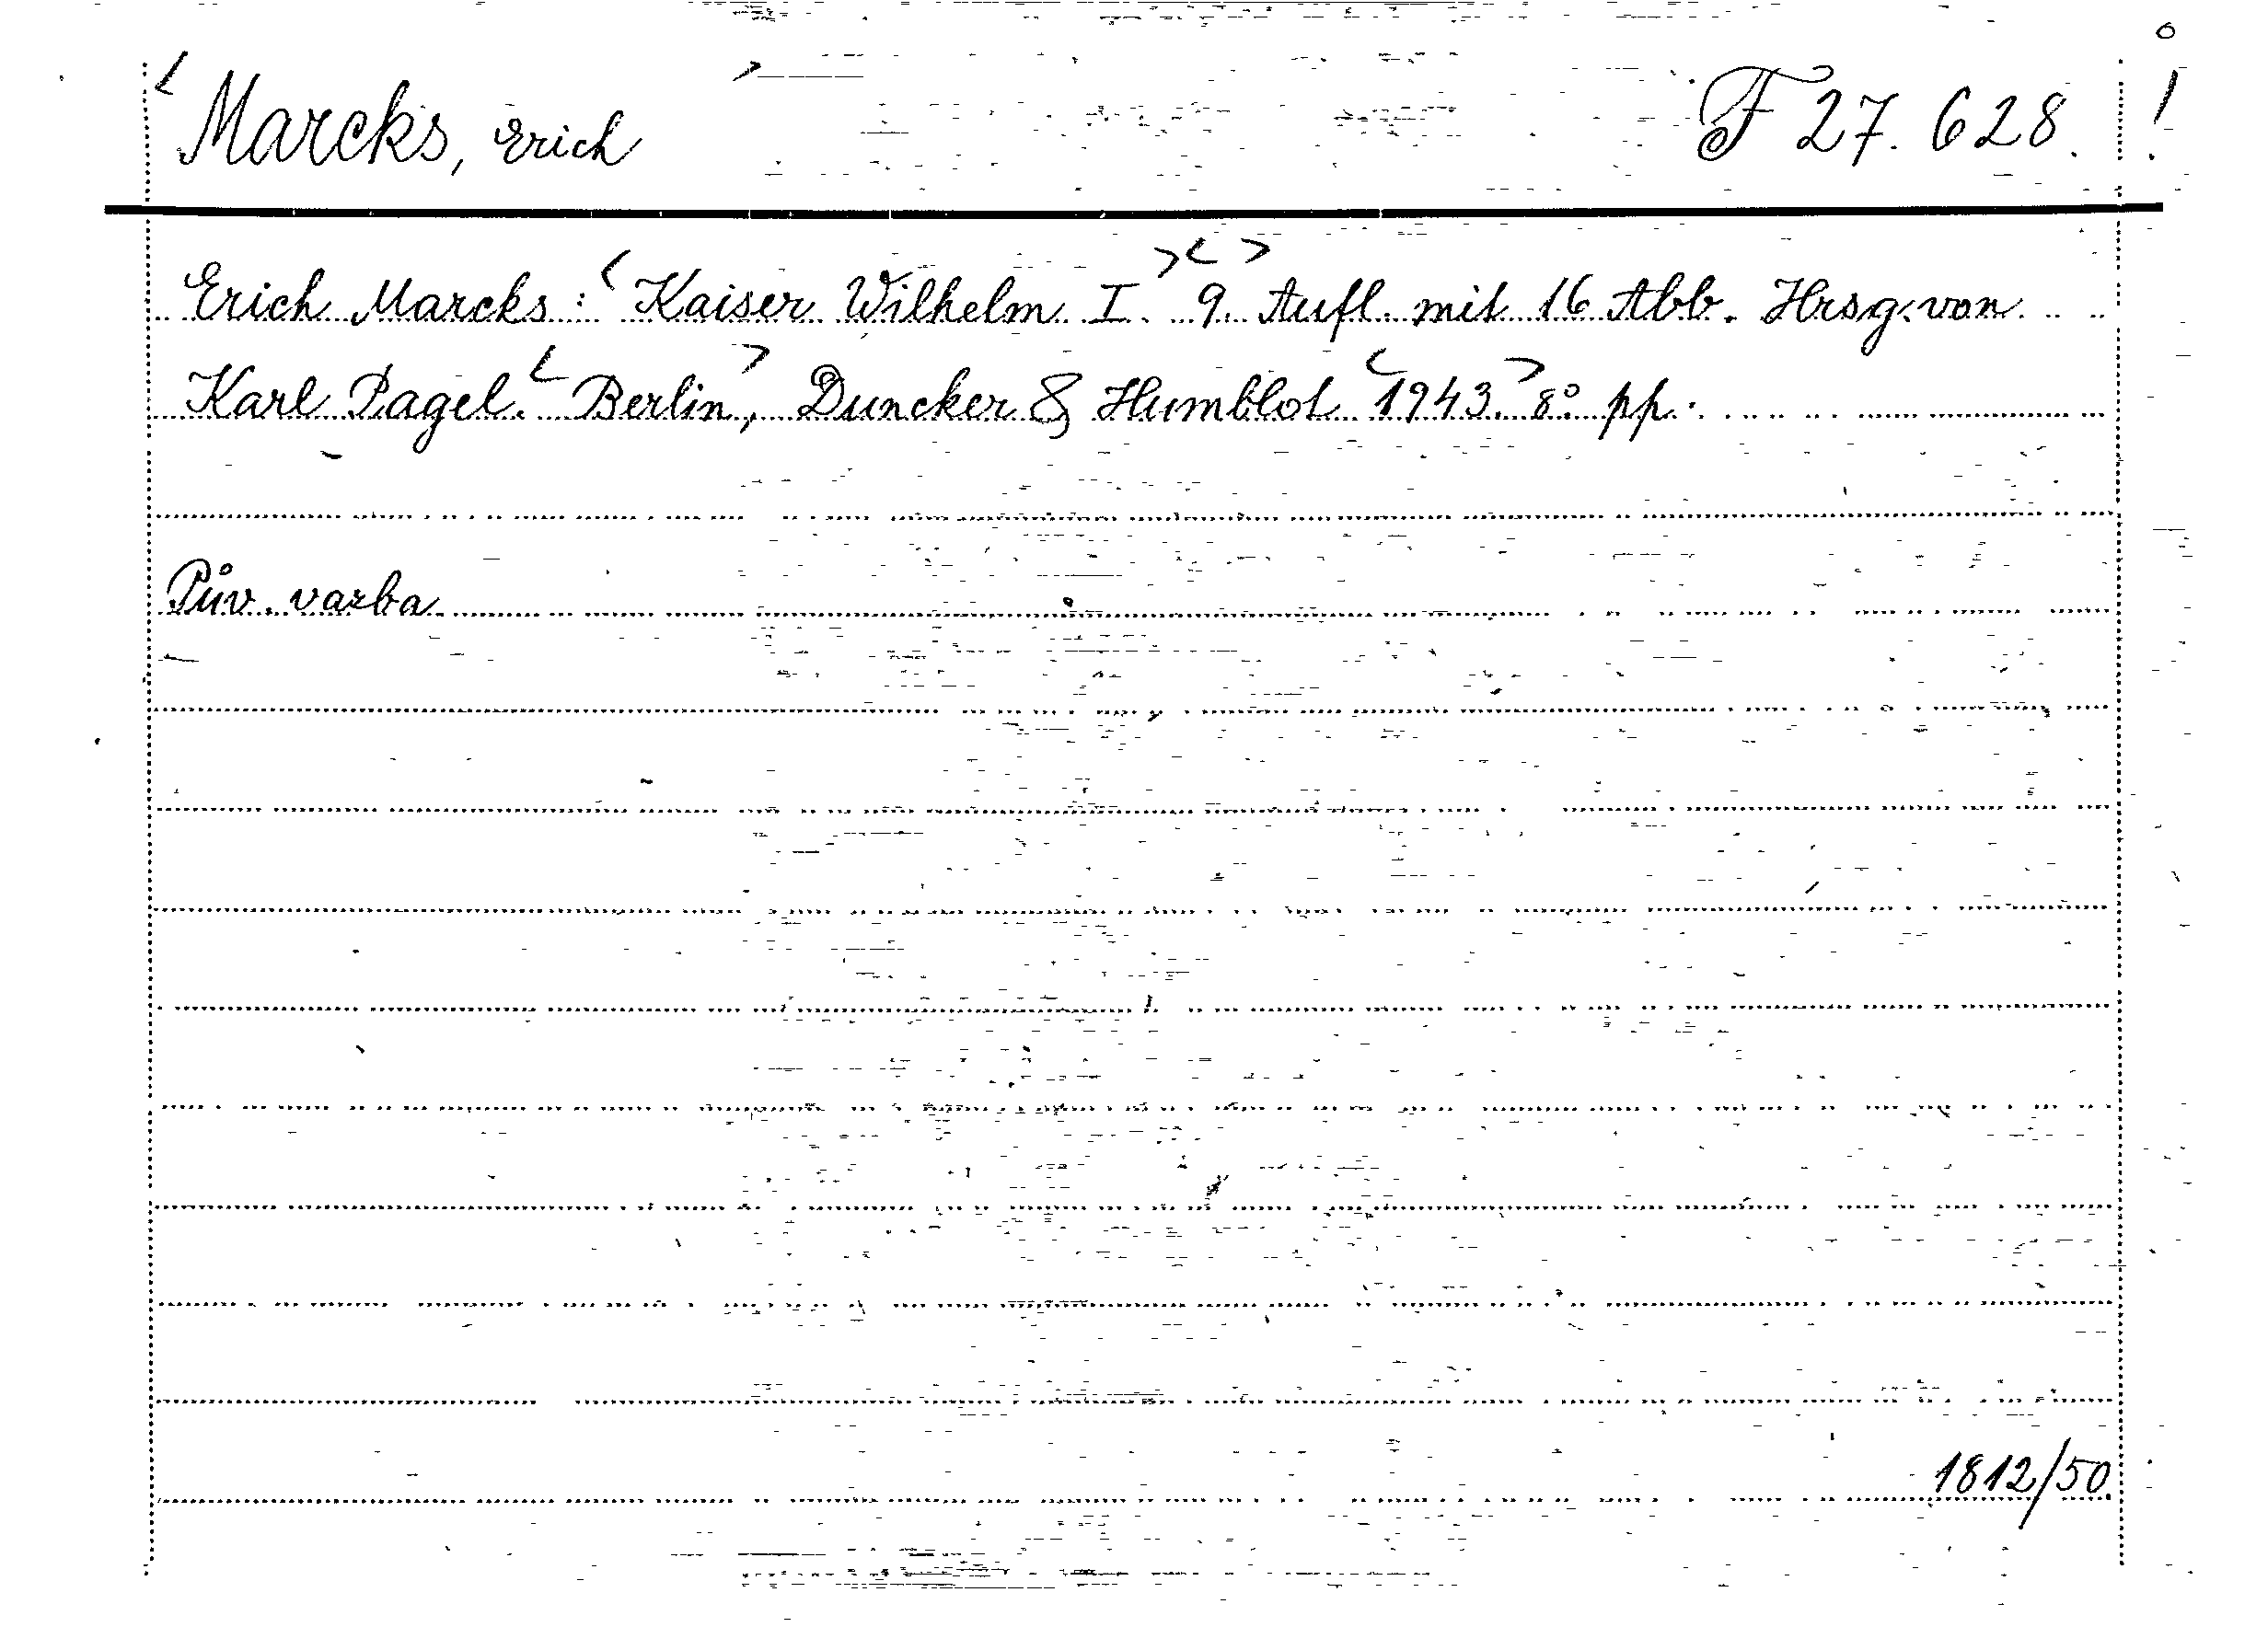 < Marcks, Erich > F 27.628. !
Erich Marcks: < Kaiser Wilhelm I. > < 9. > Aufl. mit 16 Abb. Hrsg. von
Karl Pagel. < Berlin, > Duncker & Humblot < 1943. > 8° pp.
Pův. vazba
1812/50